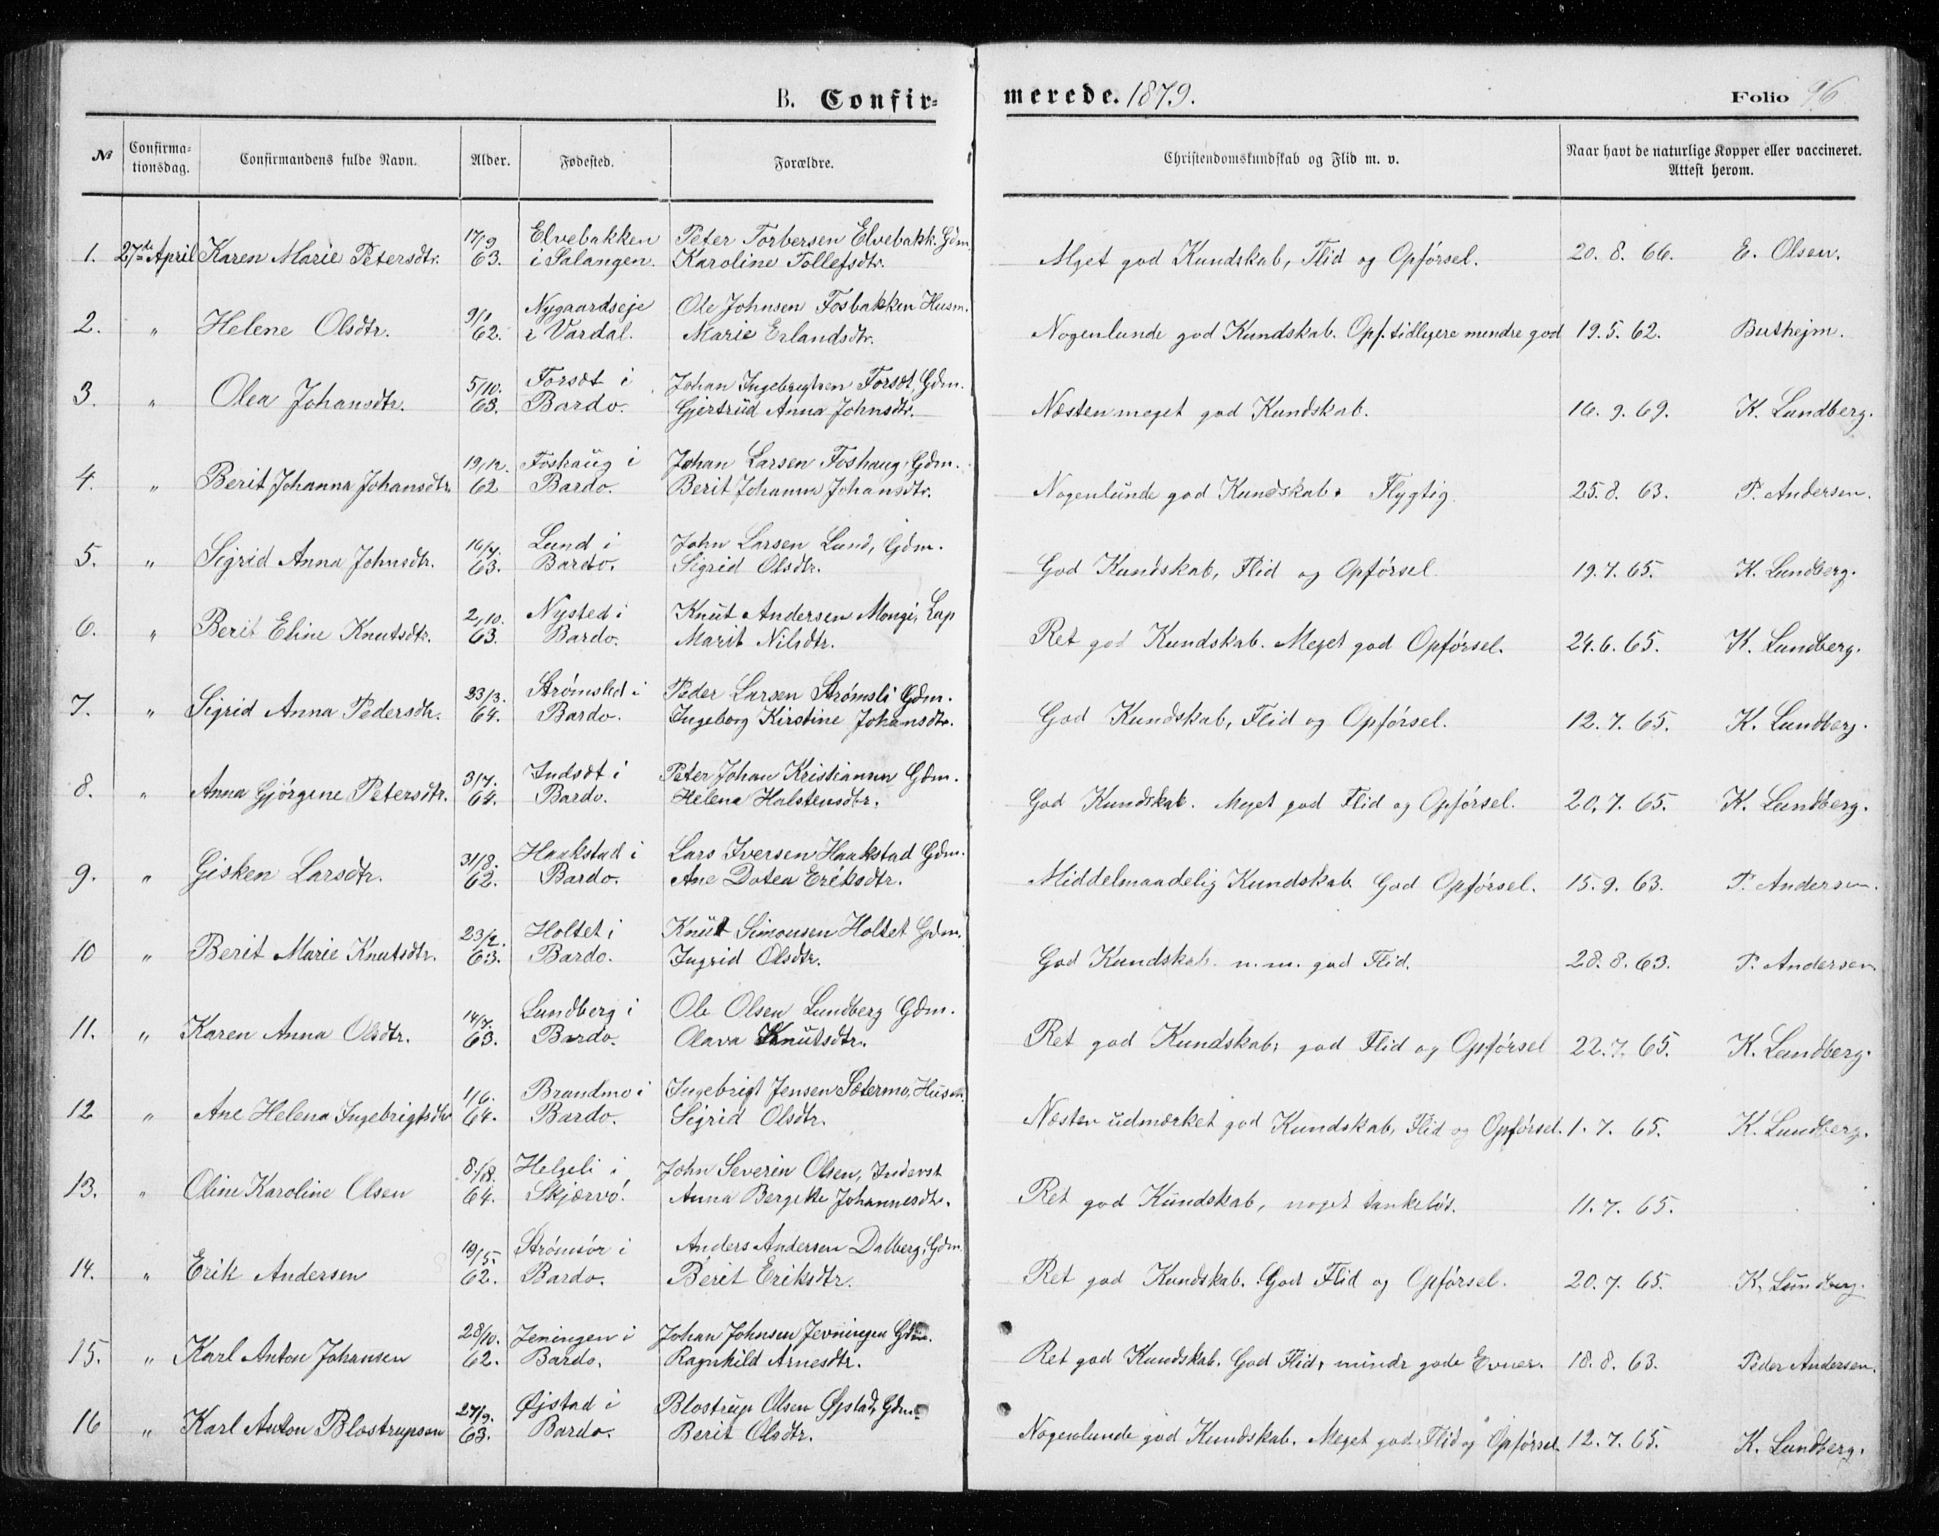 B. Confir=merede. 1879. Folio 96
№ Confirmationsdag. Confirmandens fulde Navn. Alder. Fødested. Forældre. Christendomskundskab og Flid m. v. Naar havt de naturlige Kopper eller vaccineret. Attest herom.
17/9 Elvebakken Peter Torbersen Elvebakk. Gdm.
1. 27de April Karen Marie Petersdtr. 63. i Salangen. Karoline Tollefsdtr. Mget god Kundskab, Flid og Opførsel. 20. 8. 66. E. Olsen.
9/1 Nygaardseje Ole Johnsen Fosbakken Husm.
2. " Helene Olsdtr. 62. i Vardal. Marie Erlandsdtr. Nogenlunde god Kundskab. Opf. tidligere mindre god 19. 5. 62.
5/10. Forsdt i Johan Ingebrigtsen Forsdt, Gdm.
3. " Olea Johansdtr. 63. Bardo. Gjertrud Anna Johnsdtr. Næsten meget god Kundskab. 16. 9. 69. K. Lundberg.
19/12. Foshaug i Johan Larsen Foshaug, Gdm.
4. " Berit Johanna Johansdtr. 62 Bardo. Berit Johanna Johansdtr. Nogenlunde god Kundskab. Flygtig. 25. 8. 63. P. Andersen.
16/7. Lund i John Larsen Lund, Gdm.
5. " Sigrid Anna Johnsdtr. 63. Bardo. Sigrid Olsdtr. God Kundskab, Flid og Opførsel. 19. 7. 65. K. Lundberg.
2/10. Nysted i Knut Andersen Mongi, Lap
6. " Berit Eline Knutsdtr. 63. Bardo. Marit Nilsdtr. Ret god Kundskab. Meget god Opførsel. 24. 6. 65. K. Lundberg.
23/3. Strømsted i Peder Larsen Strømsli Gdm.
7. " Sigrid Anna Pedersdtr. 64. Bardo. Ingeborg Kirstine Johansdtr. God Kundskab, Flid og Opførsel. 12. 7. 65. K. Lundberg.
3/7. Indsdt i Peter Johan Kristiansen Gdm.
8. " Anna Gjørgene Petersdtr. 64. Bardo. Helena Halstensdtr. God Kundskab. Meget god Flid og Opførsel. 20. 7. 65. K. Lundberg.
31/8. Haakstad i Lars Iversen Haakstad Gdm.
9. " Gisken Larsdtr. 62. Bardo. Ane Dotea Eriksdtr. Middelmaadelig Kundskab. God Opførsel. 15. 9. 63. P. Andersen.
23/2. Holtet i Knut Simonsen Holtet Gdm.
10 " Berit Marie Knutsdtr. 63. Bardo. Ingrid Olsdtr. God Kundskab. n. m. god Flid. 28. 8. 63. P. Andersen
14/7. Lundberg i Ole Olsen Lundberg Gdm.
11. " Karen Anna Olsdtr. 63. Bardo. Olava Knutsdtr. Ret god Kundskab, god Flid og Opførsel 22. 7. 65. K. Lundberg.
1/6. Brandmo i Ingebrigt Jensen Sætermo, Husm.
12 " Ane Helena Ingebrigtsdtr 64. Bardo. Sigrid Olsdtr. Næsten udmærket god Kundskab, Flid og Opførsel. 1. 7. 65. K. Lundberg.
8/8. Helgeli i John Severin Olsen, Inderst
13. " Oline Karoline Olsen 64. Skjærvö. Anna Bergitte Johannesdtr. Ret god Kundskab, noget tankeløs. 11. 7. 65.
19/5. Strømsør i Anders Andersen Dalberg, Gdm.
14. " Erik Andersen 62. Bardo. Berit Eriksdtr. Ret god Kundskab. God Flid og Opførsel. 20. 7. 65. K. Lundberg.
28/10. Jeningen i Johan Johnsen Jevningen Gdm.
15. " Karl Anton Johansen 62. Bardo. Ragnhild Arnesdtr. Ret god Kundskab. God Flid, mindr gode Evner. 18. 8. 63. Peder Andersen.
27/9. Øjstad i Blostrup Olsen Øjstad, Gdm.
16 " Karl Anton Blostrupsen 63. Bardo. Berit Olsdtr. Nogenlunde god Kundskab. Meget god Flid og Opførsel. 12. 7. 65. K. Lundberg.